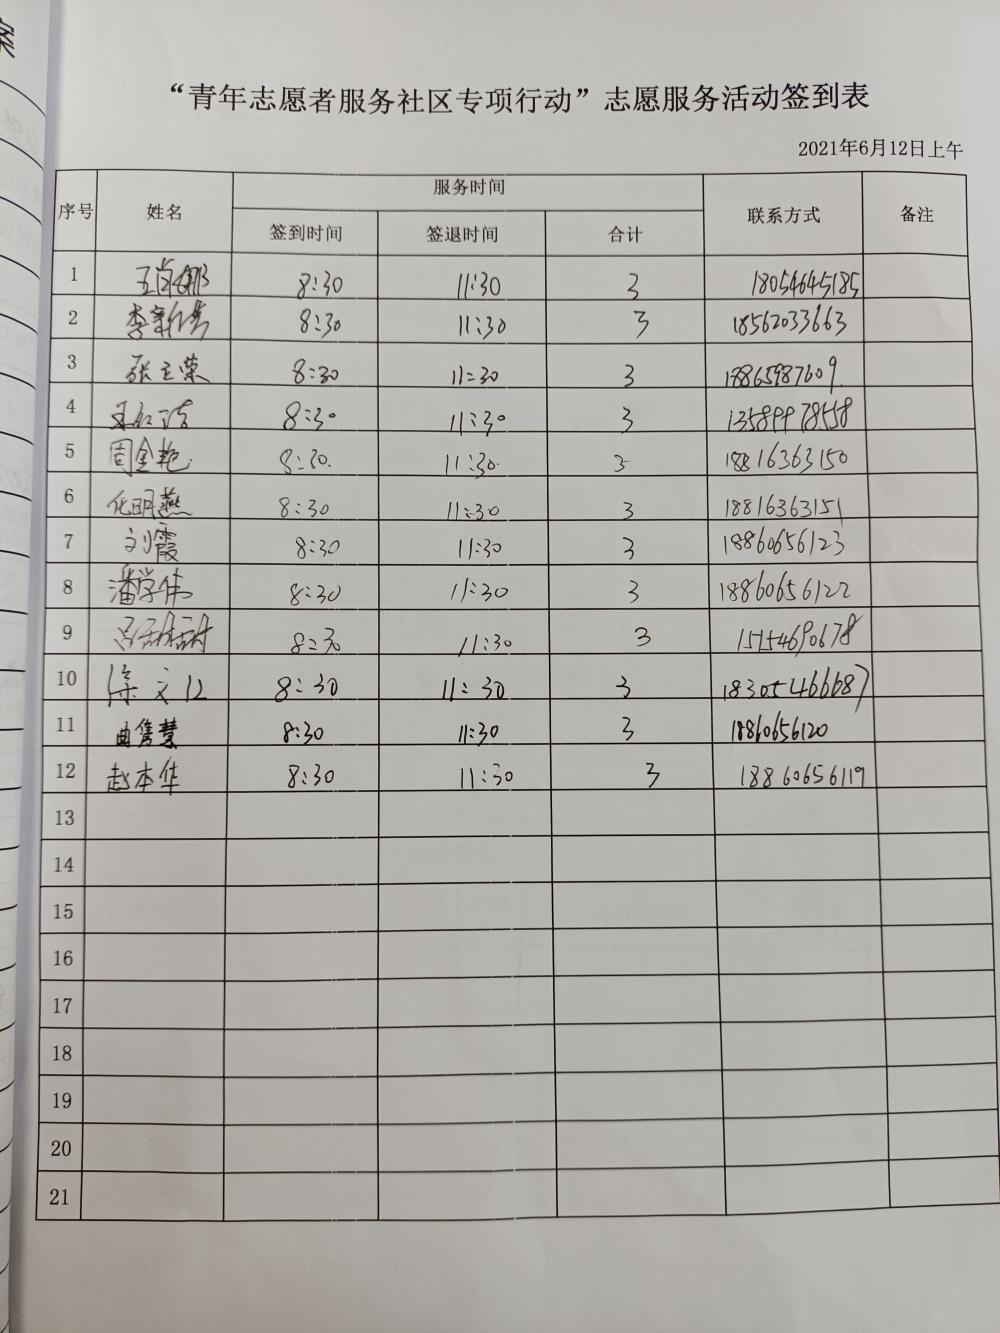 案
“青年志愿者服务社区专项行动”志愿服务活动签到表
2021年6月12日上午
序号 姓名 服务时间 联系方式 备注
签到时间 签退时间 合计
1 王尚娜 8:30 11:30 3 18054645185
2 李新倩 8:30 11:30 3 18562033663
3 张立荣 8:30 11:30 3 18865987609
4 8:30 11:30 3 13589978558
5 周金艳 8:30 11:30 3 18816363150
6 化明燕 8:30 11:30 3 18816363151
7 刘霞 8:30 11:30 3 18860656123
8 潘学伟 8:30 11:30 3 18860656122
9 8:30 11:30 3 15154690678
10 徐文江 8:30 11:30 3 18305466687
11 曲隽慧 8:30 11:30 3 18860656120
12 赵本华 8:30 11:30 3 18860656119
13
14
15
16
17
18
19
20
21